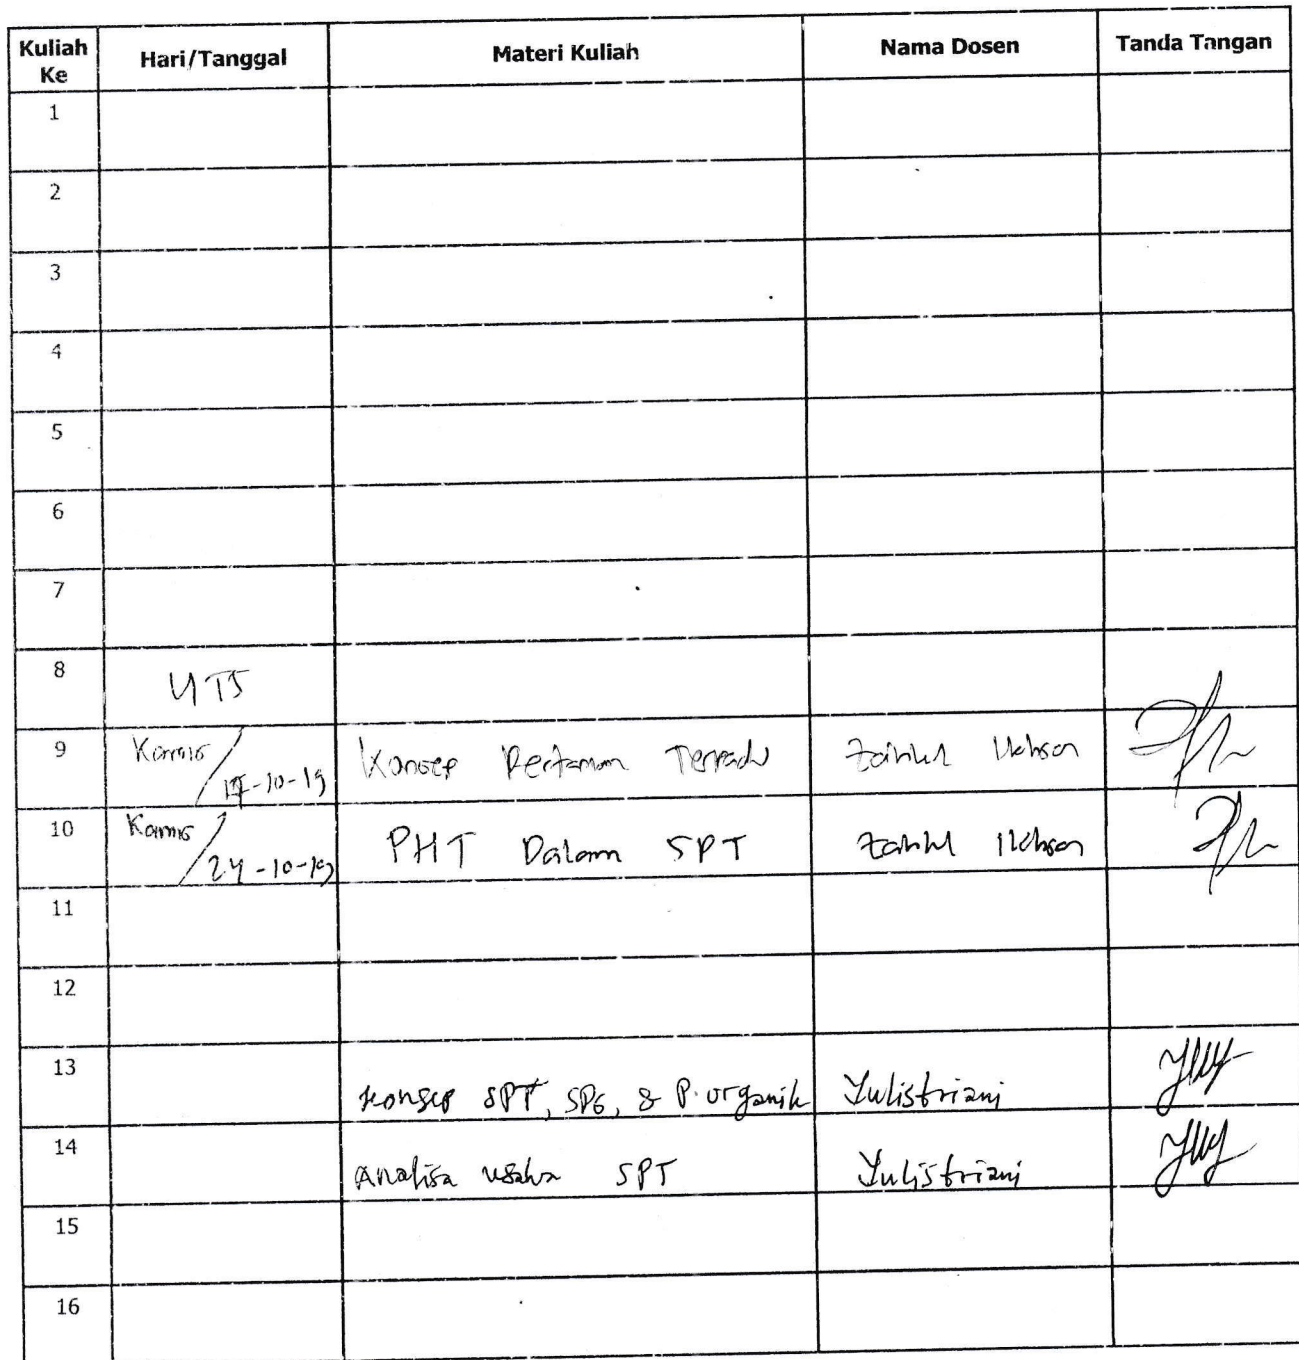 Kuliah Ke Hari/Tanggal Materi Kuliah Nama Dosen Tanda Tangan
1
2
3
4
5
6
7
8 UTS
9 Kamis / 17-10-19 Konsep Pertanian Terpadu
10 Kamis / 24-10-19 PHT Dalam SPT
11
12
13 Konsep SPT, SPG, & P. organik Yulistriani
14 Analisa usaha SPT Yulistriani
15
16